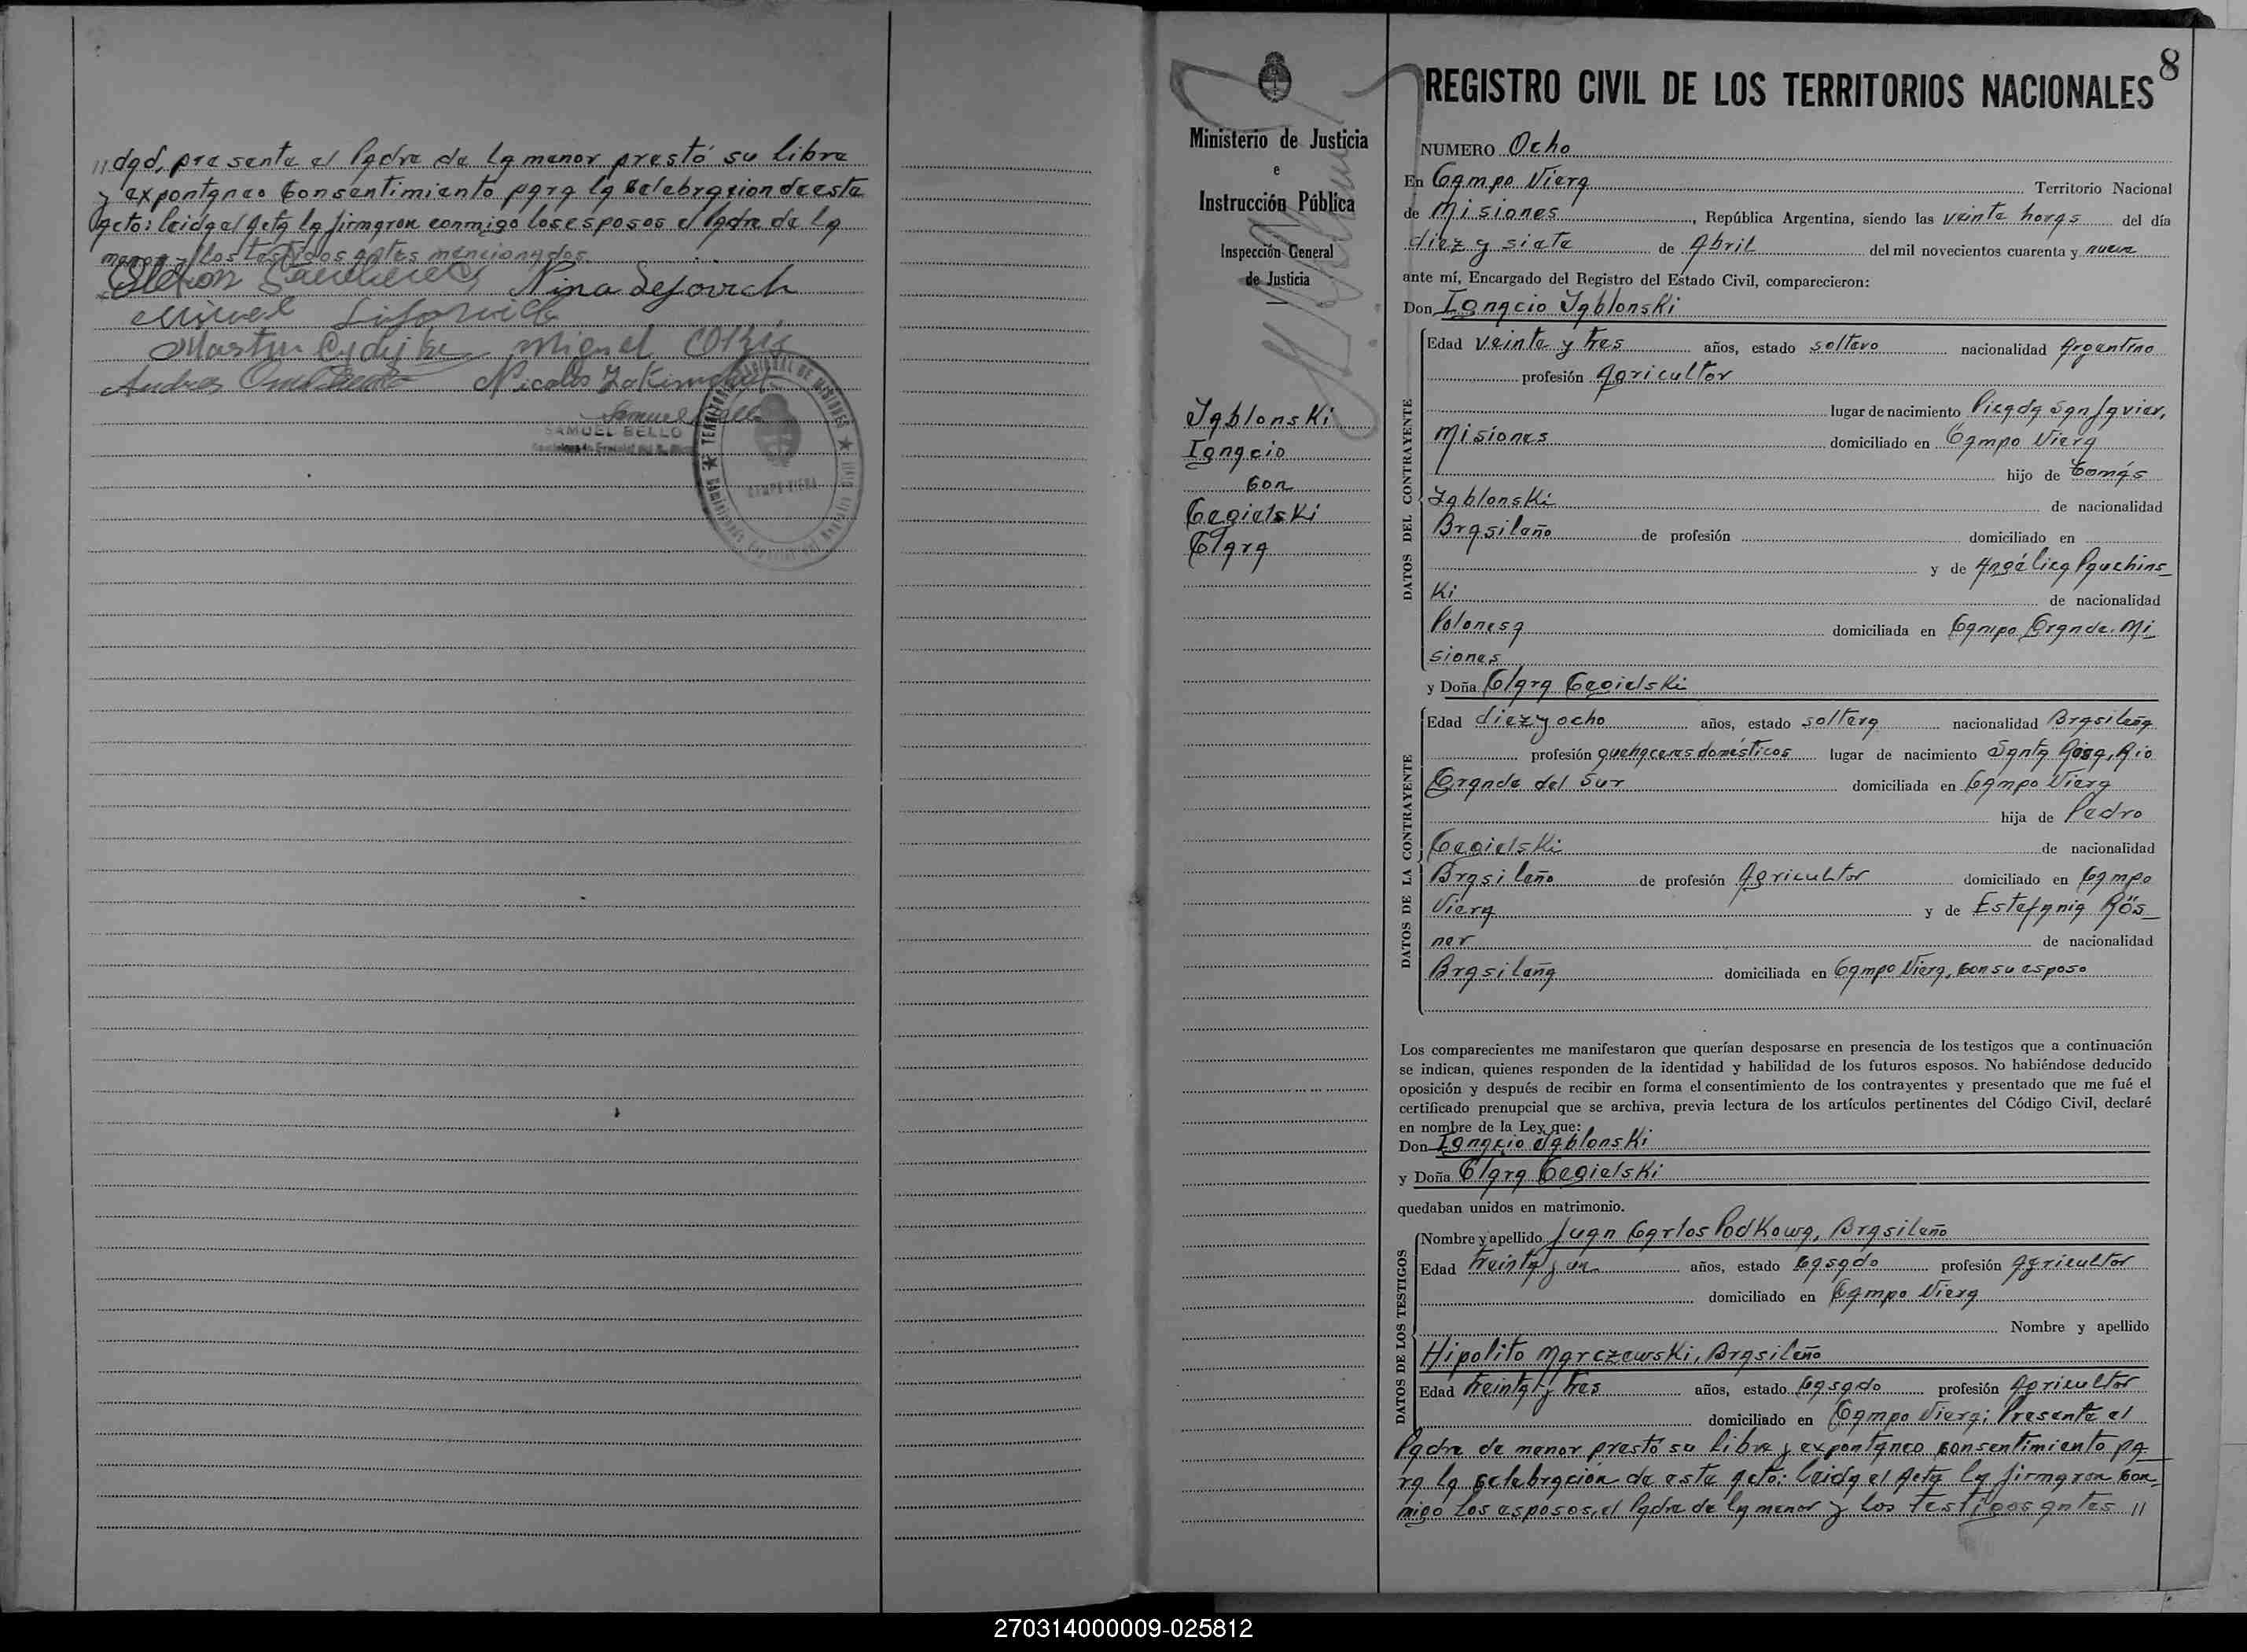 //dad, presente el Padre de la menor prestó su libre
y expontaneo consentimiento para la celebracion de este
acto: leida el Acta la firmaron conmigo los esposos el Padre de la
menor y los testigos antes mencionados.
Nina Sejovich
Miguel
Andres
Nicolas
Samuel Bello
SAMUEL BELLO
CAMPO VIERA
Ministerio de Justicia
e
Instrucción Pública
Inspección General
de Justicia
Jablonski
Ignacio
con
Cegielski
Clara
8
REGISTRO CIVIL DE LOS TERRITORIOS NACIONALES
NUMERO Ocho
En Campo Viera Territorio Nacional
de Misiones, República Argentina, siendo las veinte horas del día
diez y siete de Abril del mil novecientos cuarenta y nueve
ante mí, Encargado del Registro del Estado Civil, comparecieron:
Don Ignacio Jablonski
DATOS DEL CONTRAYENTE
Edad veinte y tres años, estado soltero nacionalidad Argentino
profesión Agricultor
lugar de nacimiento Picada San Javier,
Misiones domiciliado en Campo Viera
hijo de Tomás
Jablonski de nacionalidad
Brasileño de profesión domiciliado en
y de Angélica Pauchins_
Ki de nacionalidad
Polonesa domiciliada en Campo Grande. Mi_
siones
y Doña Clara Cegielski
DATOS DE LA CONTRAYENTE
Edad diez y ocho años, estado soltera nacionalidad Brasileña
profesión quehaceres domésticos lugar de nacimiento Santa Rosa, Rio
Grande del Sur domiciliada en Campo Viera
hija de Pedro
Cegielski de nacionalidad
Brasileño de profesión Agricultor domiciliado en Campo
Viera y de Estefania Rös_
ner de nacionalidad
Brasileña domiciliada en Campo Viera, con su esposo
Los comparecientes me manifestaron que querían desposarse en presencia de los testigos que a continuación
se indican, quienes responden de la identidad y habilidad de los futuros esposos. No habiéndose deducido
oposición y después de recibir en forma el consentimiento de los contrayentes y presentado que me fué el
certificado prenupcial que se archiva, previa lectura de los artículos pertinentes del Código Civil, declaré
en nombre de la Ley que:
Don Ignacio Jablonski
y Doña Clara Cegielski
quedaban unidos en matrimonio.
DATOS DE LOS TESTIGOS
Nombre y apellido Juan Carlos Podkowa, Brasileño
Edad treinta y un años, estado casado profesión Agricultor
domiciliado en Campo Viera
Nombre y apellido
Hipolito Marczewski, Brasileño
Edad treinta y tres años, estado casado profesión Agricultor
domiciliado en Campo Viera; Presente el
Padre de menor prestó su libre y expontaneo consentimiento pa_
ra la celebración de este acto: leida el Acta la firmaron con_
migo los esposos, el Padre de la menor y los testigos antes //
270314000009-025812